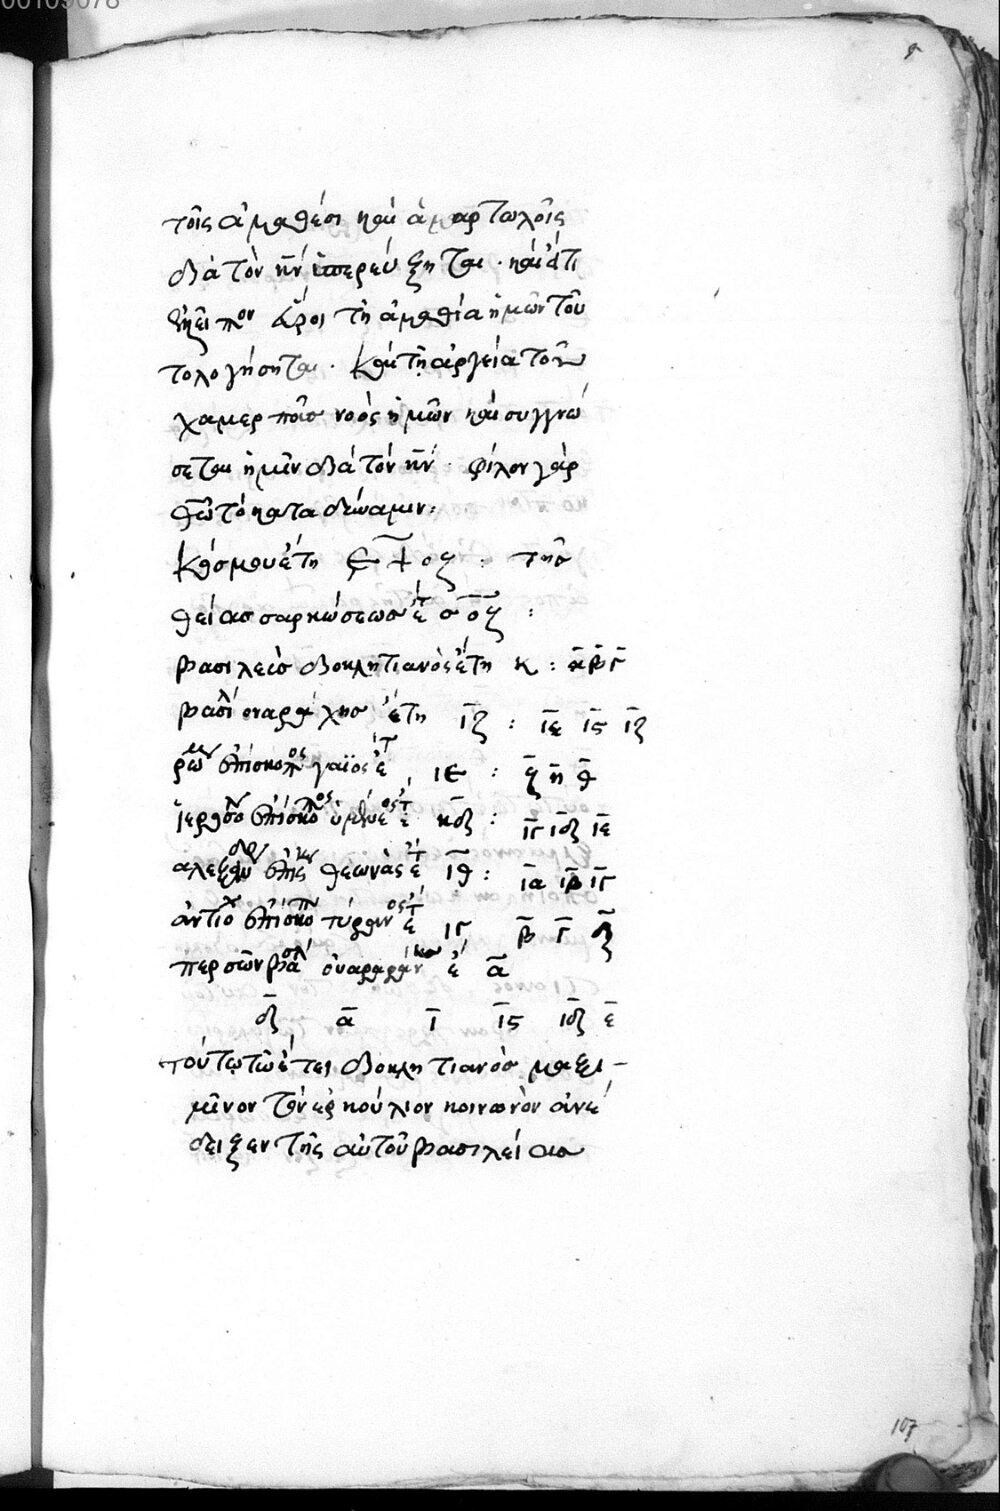 00109078
τοῖς ἀμαθέσι καὶ ἁμαρτωλοῖς
διὰ τὸν κ̅ν̅ ὑπερεύξηται · καὶ ἅτι
τῇ ἀμαθίᾳ ἡμῶν τοῦ
τολογήσηται · καὶ τῇ ἀργείᾳ τοῦ
χαμερποῦσ νοὸς ἡμῶν καὶ συγγνώ
σεται ἡμῖν διὰ τὸν κ̅ν̅ · φίλον γὰρ
θ̅ῶ̅ τὸ κατα δύναμιν :
Κόσμου ἔτη ε̅ψ̅οζ · τῆσ
θείασ σαρκώσεωσ ἔτ σ̅ο̅ζ̅ :
βασιλεὺσ διοκλητιανὸς ἔτη κ : α̅ β̅ γ̅
ἔτη ι̅ζ̅ : ι̅ε̅ ι̅ς̅ ι̅ζ̅
ῥώμ ἐπίσκοπος γαϊος ἔτ ιε : ζ̅ η̅ θ̅
ἱεροσο ἐπίσκοπος ἔτ κ̅δ̅ : ι̅γ̅ ι̅δ̅ ι̅ε̅
ἀλεξανδρ ἐπίσκ θεωνᾶς ἔτ ι̅θ̅ : ι̅α̅ ι̅β̅ ι̅γ̅
ἀντιο ἐπίσκοπ ἔτ ιγ β̅ γ̅ δ̅
περσῶν βασιλ οὐαραράν ἔ α̅
δ̅ α̅ ι̅ ι̅ς̅ ι̅δ̅ ε̅
τούτῳ τῶ ἔτει διοκλητιανὸσ μαξι-
μῖνον τὸν ἑρκούλιον κοινωνὸν ἀνέ
δειξεν τῆς αὐτοῦ βασιλείασ
107